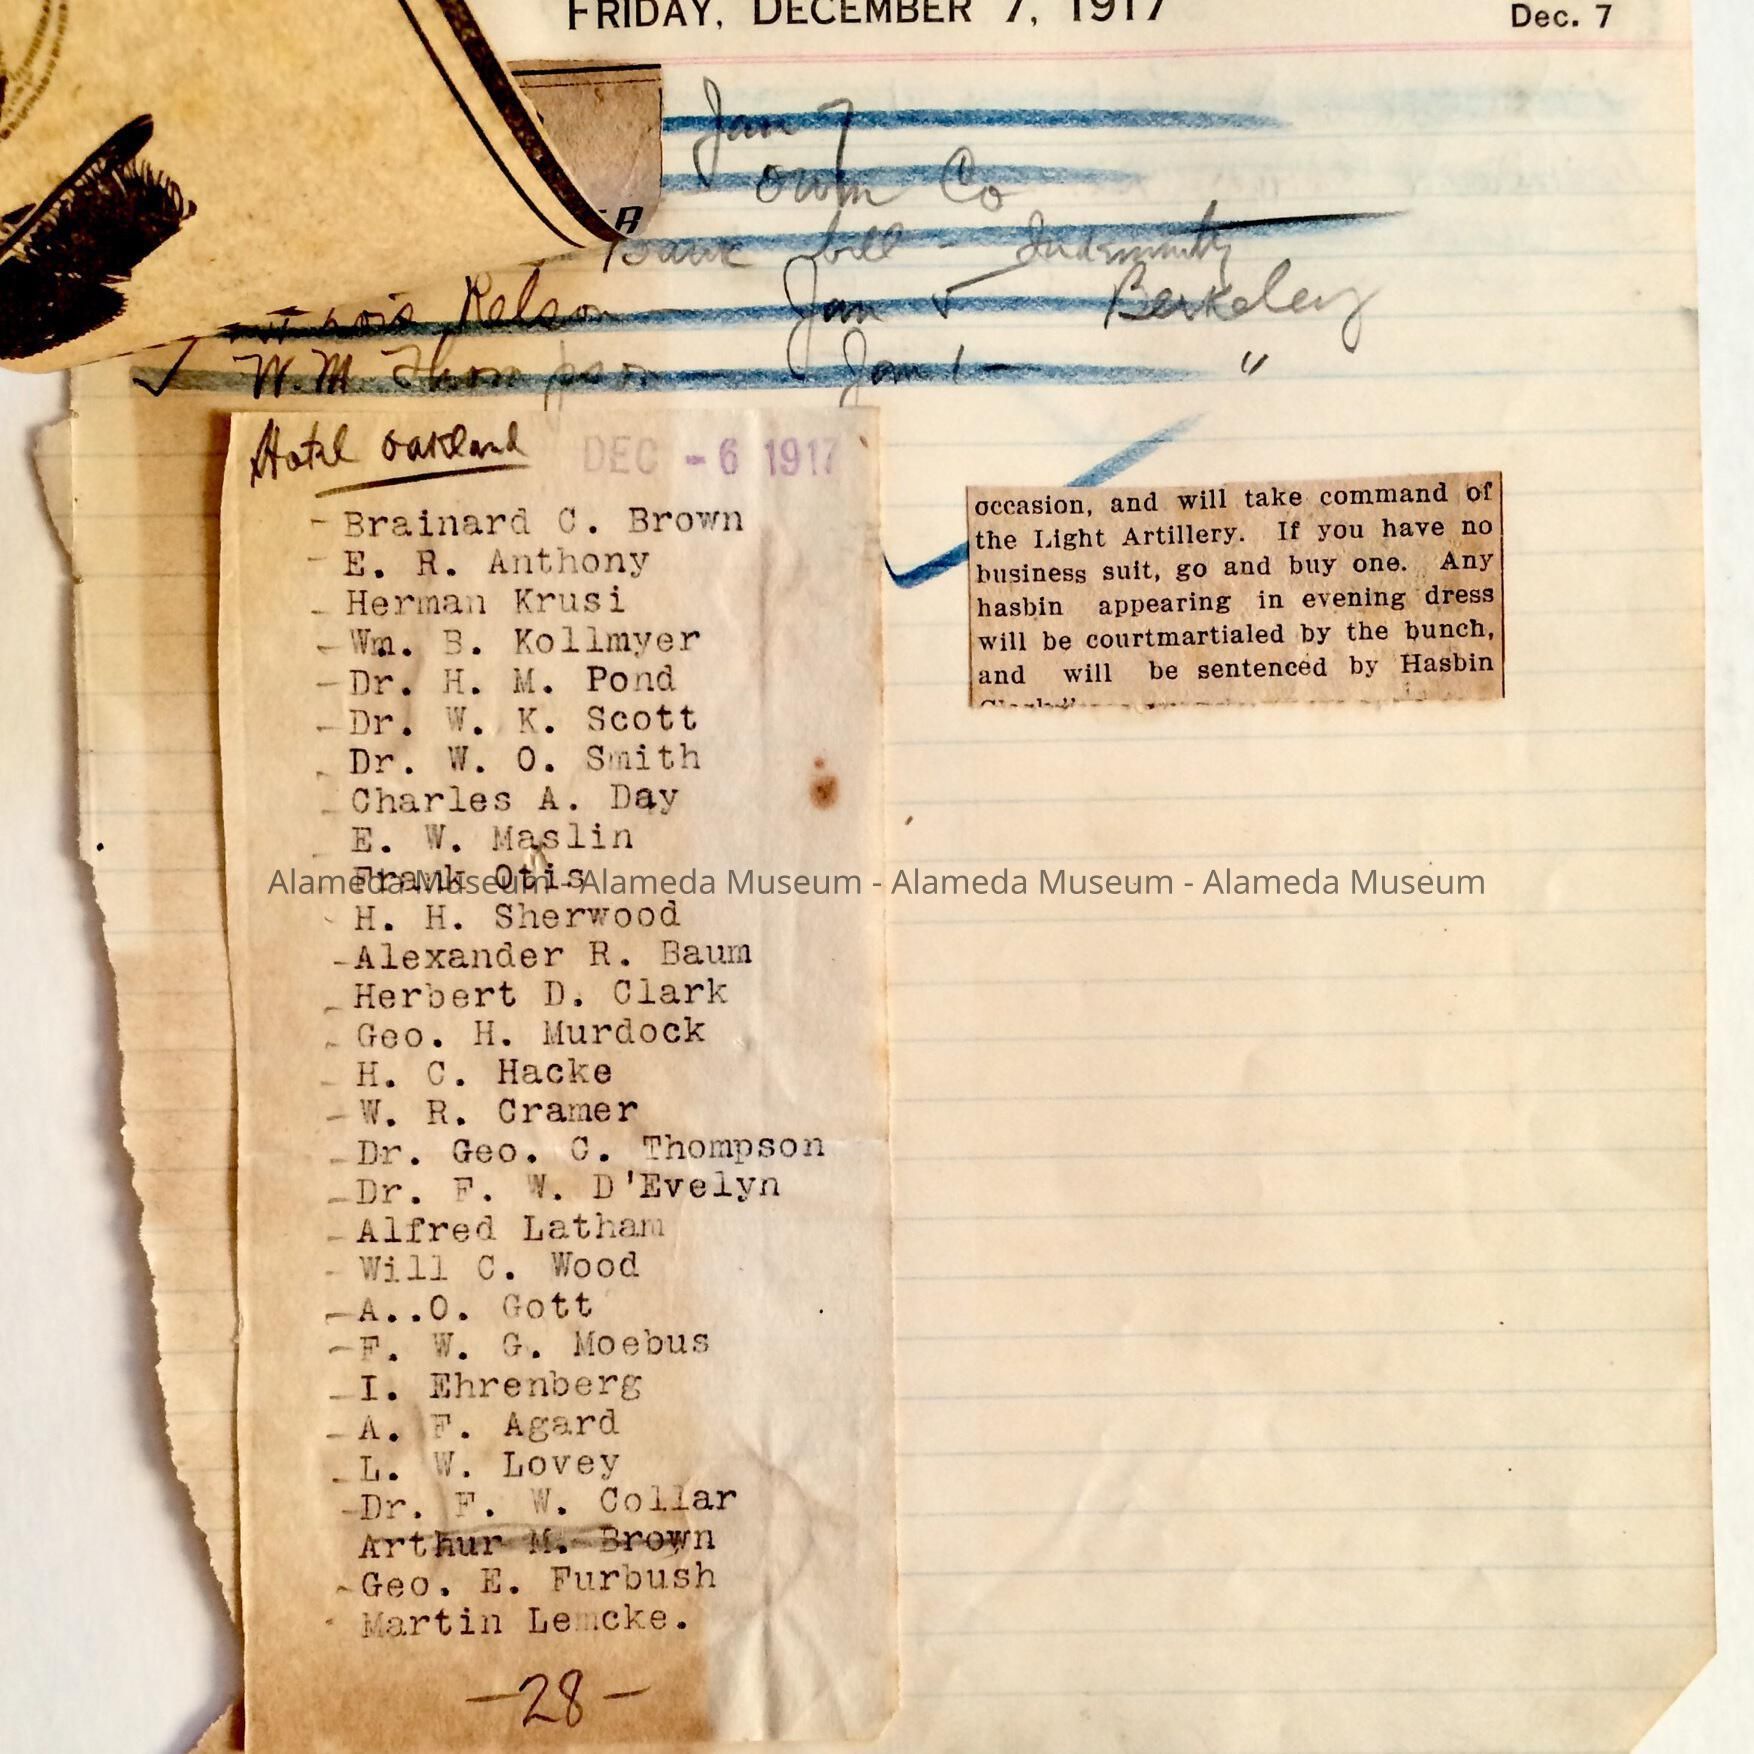 FRIDAY, DECEMBER 7, 1917 Dec. 7
Jan 7
own Co
Bank bill - Indemnity
Nelson Jan 5 Berkeley
✓ W. M. Thompson Jan 1 - "
Hotel Oakland DEC - 6 1917
- Brainard C. Brown
- E. R. Anthony
- Herman Krusi
- Wm. B. Kollmyer
- Dr. H. M. Pond
- Dr. W. K. Scott
- Dr. W. O. Smith
- Charles A. Day
- E. W. Maslin
Frank Otis
- H. H. Sherwood
- Alexander R. Baum
- Herbert D. Clark
- Geo. H. Murdock
- H. C. Hacke
- W. R. Cramer
- Dr. Geo. C. Thompson
- Dr. F. W. D'Evelyn
- Alfred Latham
- Will C. Wood
- A..O. Gott
- F. W. G. Moebus
- I. Ehrenberg
- A. F. Agard
- L. W. Lovey
- Dr. F. W. Collar
Arthur M. Brown
- Geo. E. Furbush
- Martin Lemcke.
-28-
occasion, and will take command of
the Light Artillery. If you have no
business suit, go and buy one. Any
hasbin appearing in evening dress
will be courtmartialed by the bunch,
and will be sentenced by Hasbin
Alameda Museum - Alameda Museum - Alameda Museum - Alameda Museum